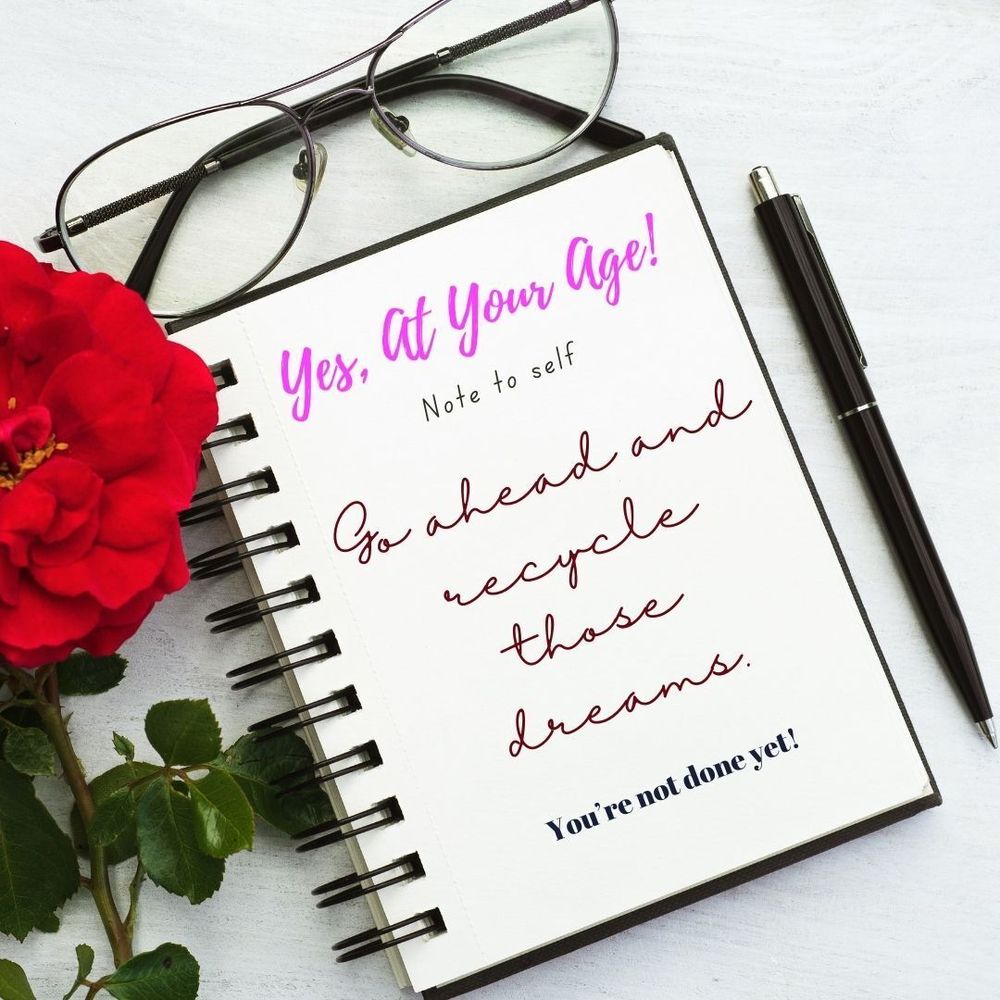 Yes, At Your Age!
Note to self
Go ahead and
recycle
those
dreams.
You're not done yet!